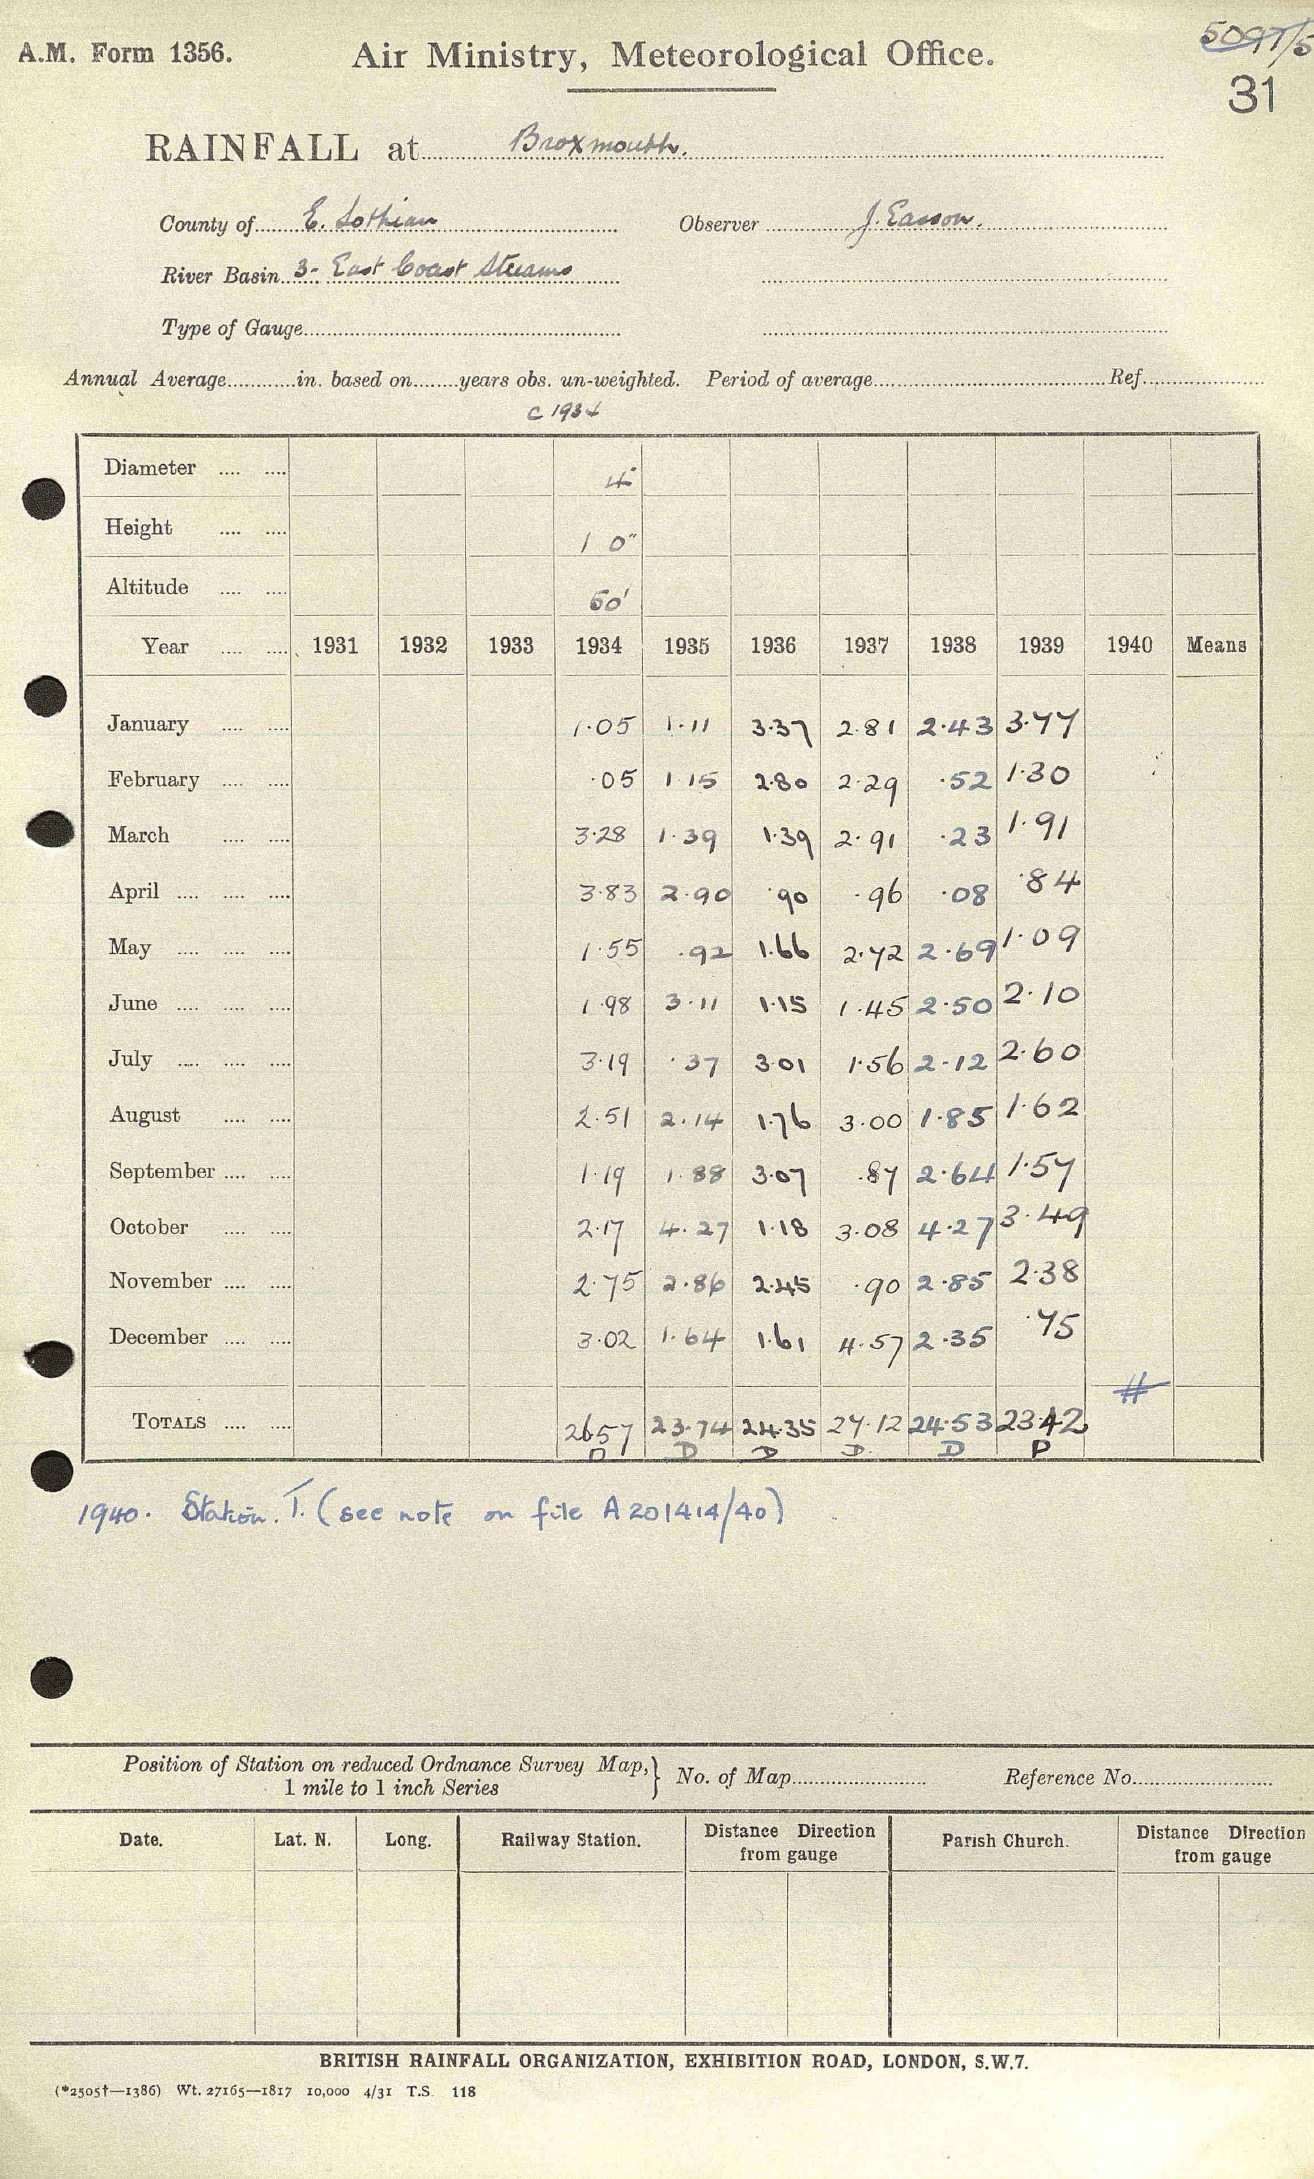 A.M. Form 1356. Air Ministry, Meteorological Office. 5097/5
31
RAINFALL at Broxmouth.
County of E. Lothian Observer J. Easson.
River Basin 3- East Coast Streams
Type of Gauge
Annual Average in. based on years obs. un-weighted. Period of average Ref.
c 1934
Diameter 4"
Height 1 0"
Altitude 50'
Year 1931 1932 1933 1934 1935 1936 1937 1938 1939 1940 Means
January 1.05 1.11 3.37 2.81 2.43 3.77
February .05 1.15 2.80 2.29 .52 1.30
March 3.28 1.39 1.39 2.91 .23 1.91
April 3.83 2.90 .90 .96 .08 .84
May 1.55 .92 1.66 2.72 2.69 1.09
June 1.98 3.11 1.15 1.45 2.50 2.10
July 3.19 .37 3.01 1.56 2.12 2.60
August 2.51 2.14 1.76 3.00 1.85 1.62
September 1.19 1.88 3.07 .87 2.64 1.57
October 2.17 4.27 1.18 3.08 4.27 3.49
November 2.75 2.86 2.45 .90 2.85 2.38
December 3.02 1.64 1.61 4.57 2.35 .75
TOTALS 26.57 23.74 24.35 27.12 24.53 23.42
D D D D. D P
1940. Station. T. (see note on file A201414/40)
Position of Station on reduced Ordnance Survey Map, 1 mile to 1 inch Series } No. of Map Reference No.
Date. Lat. N. Long. Railway Station. Distance Direction from gauge Parish Church. Distance Direction from gauge
BRITISH RAINFALL ORGANIZATION, EXHIBITION ROAD, LONDON, S.W.7.
(*2505†—1386) Wt. 27165—1817 10,000 4/31 T.S. 118